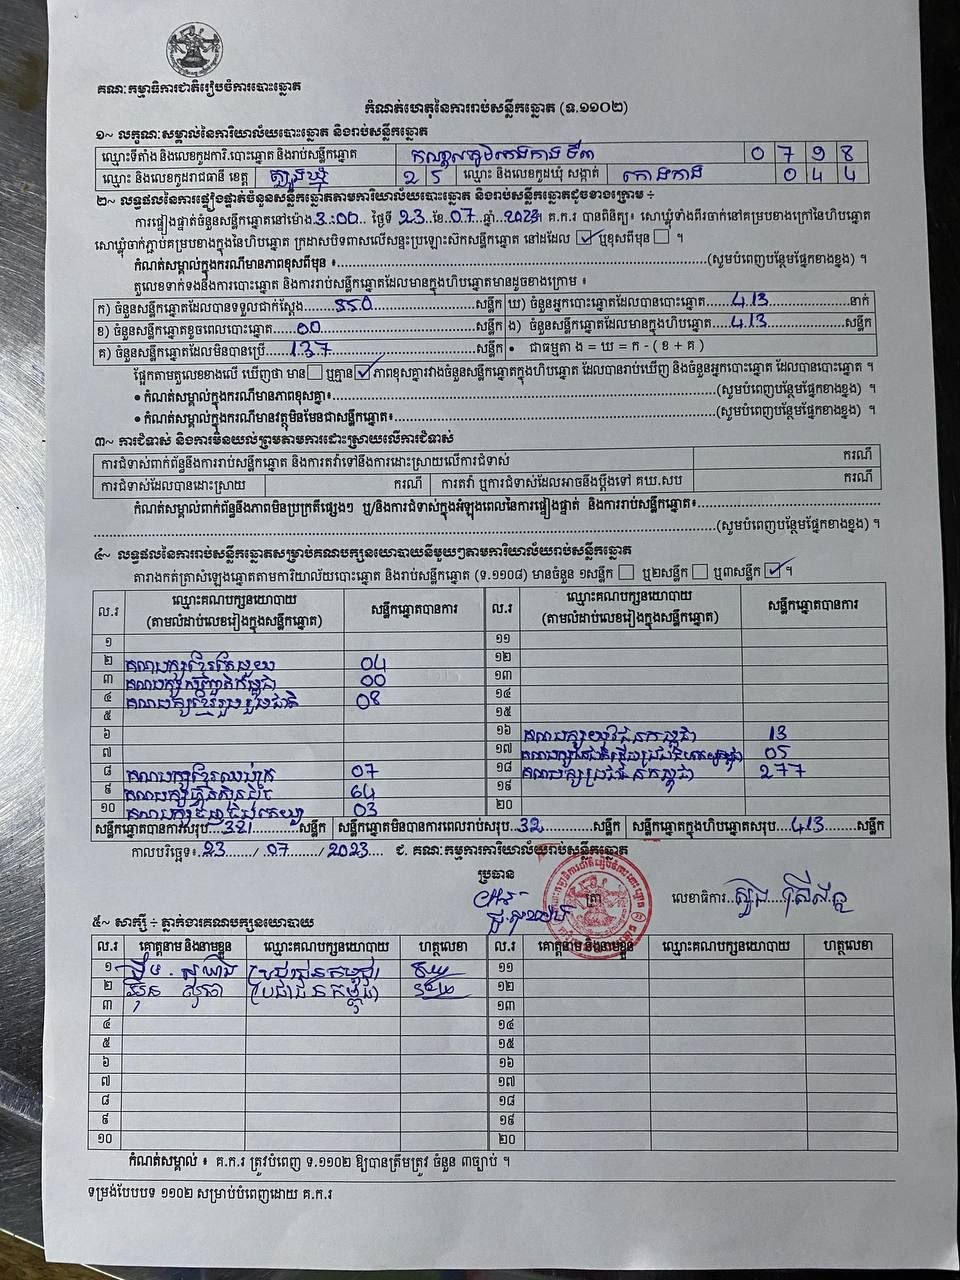 គណៈកម្មាធិការជាតិរៀបចំការបោះឆ្នោត
កំណត់ហេតុនៃការរាប់សន្លឹកឆ្នោត (ទ.១១០២)
១~ លក្ខណៈសម្គាល់នៃការិយាល័យបោះឆ្នោត និងរាប់សន្លឹកឆ្នោត
ឈ្មោះទីតាំង និងលេខកូដការិ.បោះឆ្នោត និងរាប់សន្លឹកឆ្នោត 0798
ឈ្មោះ និងលេខកូដរាជធានី ខេត្ត ត្បូងឃ្មុំ 25 ឈ្មោះ និងលេខកូដឃុំ សង្កាត់ កោងកាង 044
២~ លទ្ធផលនៃការផ្ទៀងផ្ទាត់ចំនួនសន្លឹកឆ្នោតតាមការិយាល័យបោះឆ្នោត និងរាប់សន្លឹកឆ្នោតដូចខាងក្រោម ÷
ការផ្ទៀងផ្ទាត់ចំនួនសន្លឹកឆ្នោតនៅម៉ោង 3:00 ថ្ងៃទី 23 ខែ 07 ឆ្នាំ 2023 គ.ក.រ បានពិនិត្យ៖ សោឃ្លុំទាំងពីរចាក់នៅគម្របខាងក្រៅនៃហិបឆ្នោត
សោឃ្លុំចាក់ភ្ជាប់គម្របខាងក្នុងនៃហិបឆ្នោត ក្រដាសបិទពាសលើសន្ទះប្រឡោះស៊កសន្លឹកឆ្នោត នៅដដែល ☑ ឬខុសពីមុន ☐ ។
កំណត់សម្គាល់ក្នុងករណីមានភាពខុសពីមុន ៖ (សូមបំពេញបន្ថែមផ្នែកខាងខ្នង) ។
តួលេខទាក់ទងនឹងការបោះឆ្នោត និងការរាប់សន្លឹកឆ្នោតដែលមានក្នុងហិបឆ្នោតមានដូចខាងក្រោម ៖
ក) ចំនួនសន្លឹកឆ្នោតដែលបានទទួលជាក់ស្តែង 550 សន្លឹក ឃ) ចំនួនអ្នកបោះឆ្នោតដែលបានបោះឆ្នោត 413 នាក់
ខ) ចំនួនសន្លឹកឆ្នោតខូចពេលបោះឆ្នោត 00 សន្លឹក ង) ចំនួនសន្លឹកឆ្នោតដែលមានក្នុងហិបឆ្នោត 413 សន្លឹក
គ) ចំនួនសន្លឹកឆ្នោតដែលមិនបានប្រើ 137 សន្លឹក • ជាធម្មតា ង = ឃ = ក - ( ខ + គ )
ផ្អែកតាមតួលេខខាងលើ ឃើញថា មាន ☐ ឬគ្មាន ☑ ភាពខុសគ្នារវាងចំនួនសន្លឹកឆ្នោតក្នុងហិបឆ្នោត ដែលបានរាប់ឃើញ និងចំនួនអ្នកបោះឆ្នោត ដែលបានបោះឆ្នោត ។
• កំណត់សម្គាល់ក្នុងករណីមានភាពខុសគ្នា៖ (សូមបំពេញបន្ថែមផ្នែកខាងខ្នង) ។
• កំណត់សម្គាល់ក្នុងករណីមានវត្ថុមិនមែនជាសន្លឹកឆ្នោត៖ (សូមបំពេញបន្ថែមផ្នែកខាងខ្នង) ។
៣~ ការជំទាស់ និងការមិនយល់ព្រមតាមការដោះស្រាយលើការជំទាស់
ការជំទាស់ពាក់ព័ន្ធនឹងការរាប់សន្លឹកឆ្នោត និងការតវ៉ាទៅនឹងការដោះស្រាយលើការជំទាស់ ករណី
ការជំទាស់ដែលបានដោះស្រាយ ករណី ការតវ៉ា ឬការជំទាស់ដែលអាចនឹងប្តឹងទៅ គឃ.សប ករណី
កំណត់សម្គាល់ពាក់ព័ន្ធនឹងភាពមិនប្រក្រតីផ្សេងៗ ឬ/និងការជំទាស់ក្នុងអំឡុងពេលនៃការផ្ទៀងផ្ទាត់ និងការរាប់សន្លឹកឆ្នោត៖
(សូមបំពេញបន្ថែមផ្នែកខាងខ្នង) ។
៤~ លទ្ធផលនៃការរាប់សន្លឹកឆ្នោតសម្រាប់គណបក្សនយោបាយនីមួយៗតាមការិយាល័យរាប់សន្លឹកឆ្នោត
តារាងកត់ត្រាសំឡេងឆ្នោតតាមការិយាល័យបោះឆ្នោត និងរាប់សន្លឹកឆ្នោត (ទ.១១០៨) មានចំនួន ១សន្លឹក ☐ ឬ២សន្លឹក ☐ ឬ៣សន្លឹក ☑ ។
ល.រ ឈ្មោះគណបក្សនយោបាយ (តាមលំដាប់លេខរៀងក្នុងសន្លឹកឆ្នោត) សន្លឹកឆ្នោតបានការ ល.រ ឈ្មោះគណបក្សនយោបាយ (តាមលំដាប់លេខរៀងក្នុងសន្លឹកឆ្នោត) សន្លឹកឆ្នោតបានការ
១ ១១
២ គណបក្សខ្មែរតែមួយ 04 ១២
៣ 00 ១៣
៤ គណបក្សខ្មែររួបរួមជាតិ 08 ១៤
៥ ១៥
៦ ១៦ គណបក្សយុវជនកម្ពុជា 13
៧ ១៧ 05
៨ គណបក្សខ្មែរឈប់ក្រ 07 ១៨ គណបក្សប្រជាជនកម្ពុជា 277
៩ គណបក្សហ្វ៊ុនស៊ិនប៉ិច 64 ១៩
១០ 03 ២០
សន្លឹកឆ្នោតបានការសរុប 321 សន្លឹក សន្លឹកឆ្នោតមិនបានការពេលរាប់សរុប 32 សន្លឹក សន្លឹកឆ្នោតក្នុងហិបឆ្នោតសរុប 413 សន្លឹក
កាលបរិច្ឆេទ៖ 23 / 07 / 2023 ជ. គណៈកម្មការការិយាល័យរាប់សន្លឹកឆ្នោត
ប្រធាន ត្រា លេខាធិការ
៥~ សាក្សី ÷ ភ្នាក់ងារគណបក្សនយោបាយ
ល.រ គោត្តនាម និងនាមខ្លួន ឈ្មោះគណបក្សនយោបាយ ហត្ថលេខា ល.រ គោត្តនាម និងនាមខ្លួន ឈ្មោះគណបក្សនយោបាយ ហត្ថលេខា
១ ប្រជាជនកម្ពុជា ១១
២ ប្រជាជនកម្ពុជា ១២
៣ ១៣
៤ ១៤
៥ ១៥
៦ ១៦
៧ ១៧
៨ ១៨
៩ ១៩
១០ ២០
កំណត់សម្គាល់ ៖ គ.ក.រ ត្រូវបំពេញ ទ.១១០២ ឱ្យបានត្រឹមត្រូវ ចំនួន ៣ច្បាប់ ។
ទម្រង់បែបបទ ១១០២ សម្រាប់បំពេញដោយ គ.ក.រ